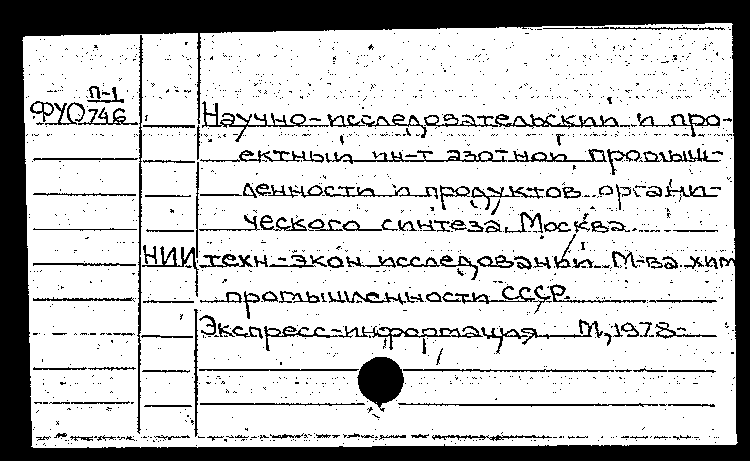 П-1
ФУО746
Научно-исследовательский и про-
ектный ин-т азотной промыш-
ленности и продуктов органи-
ческого синтеза. Москва
НИИ техн.-экон исследований М-ва хим
промышленности СССР.
Экспресс-информация. М., 1978-